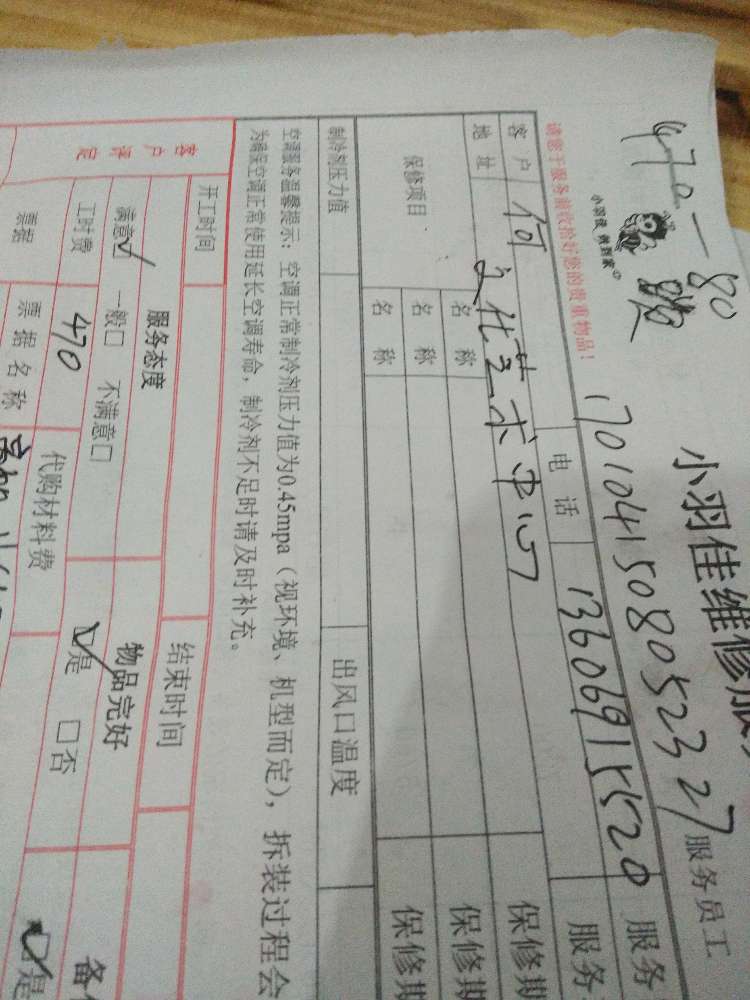 470-80
小羽佳维修服务
小羽佳 帮到家
17010415080523 27
服务员工
请您于服务前收拾好您的贵重物品!
客户 何 电话 13606915520 服务
地址 文化艺术中心 服务
保修项目 名称 保修期
名称 保修期
名称 保修期
制冷剂压力值 出风口温度
空调服务温馨提示:空调正常制冷剂压力值为0.45mpa(视环境、机型而定),拆装过程会
为确保空调正常使用延长空调寿命,制冷剂不足时请及时补充。
开工时间 结束时间
客户评定 服务态度 物品完好
满意☑ 一般□ 不满意□ ☑是 □否
工时费 470 代购材料费
票据 票据名称
☑是